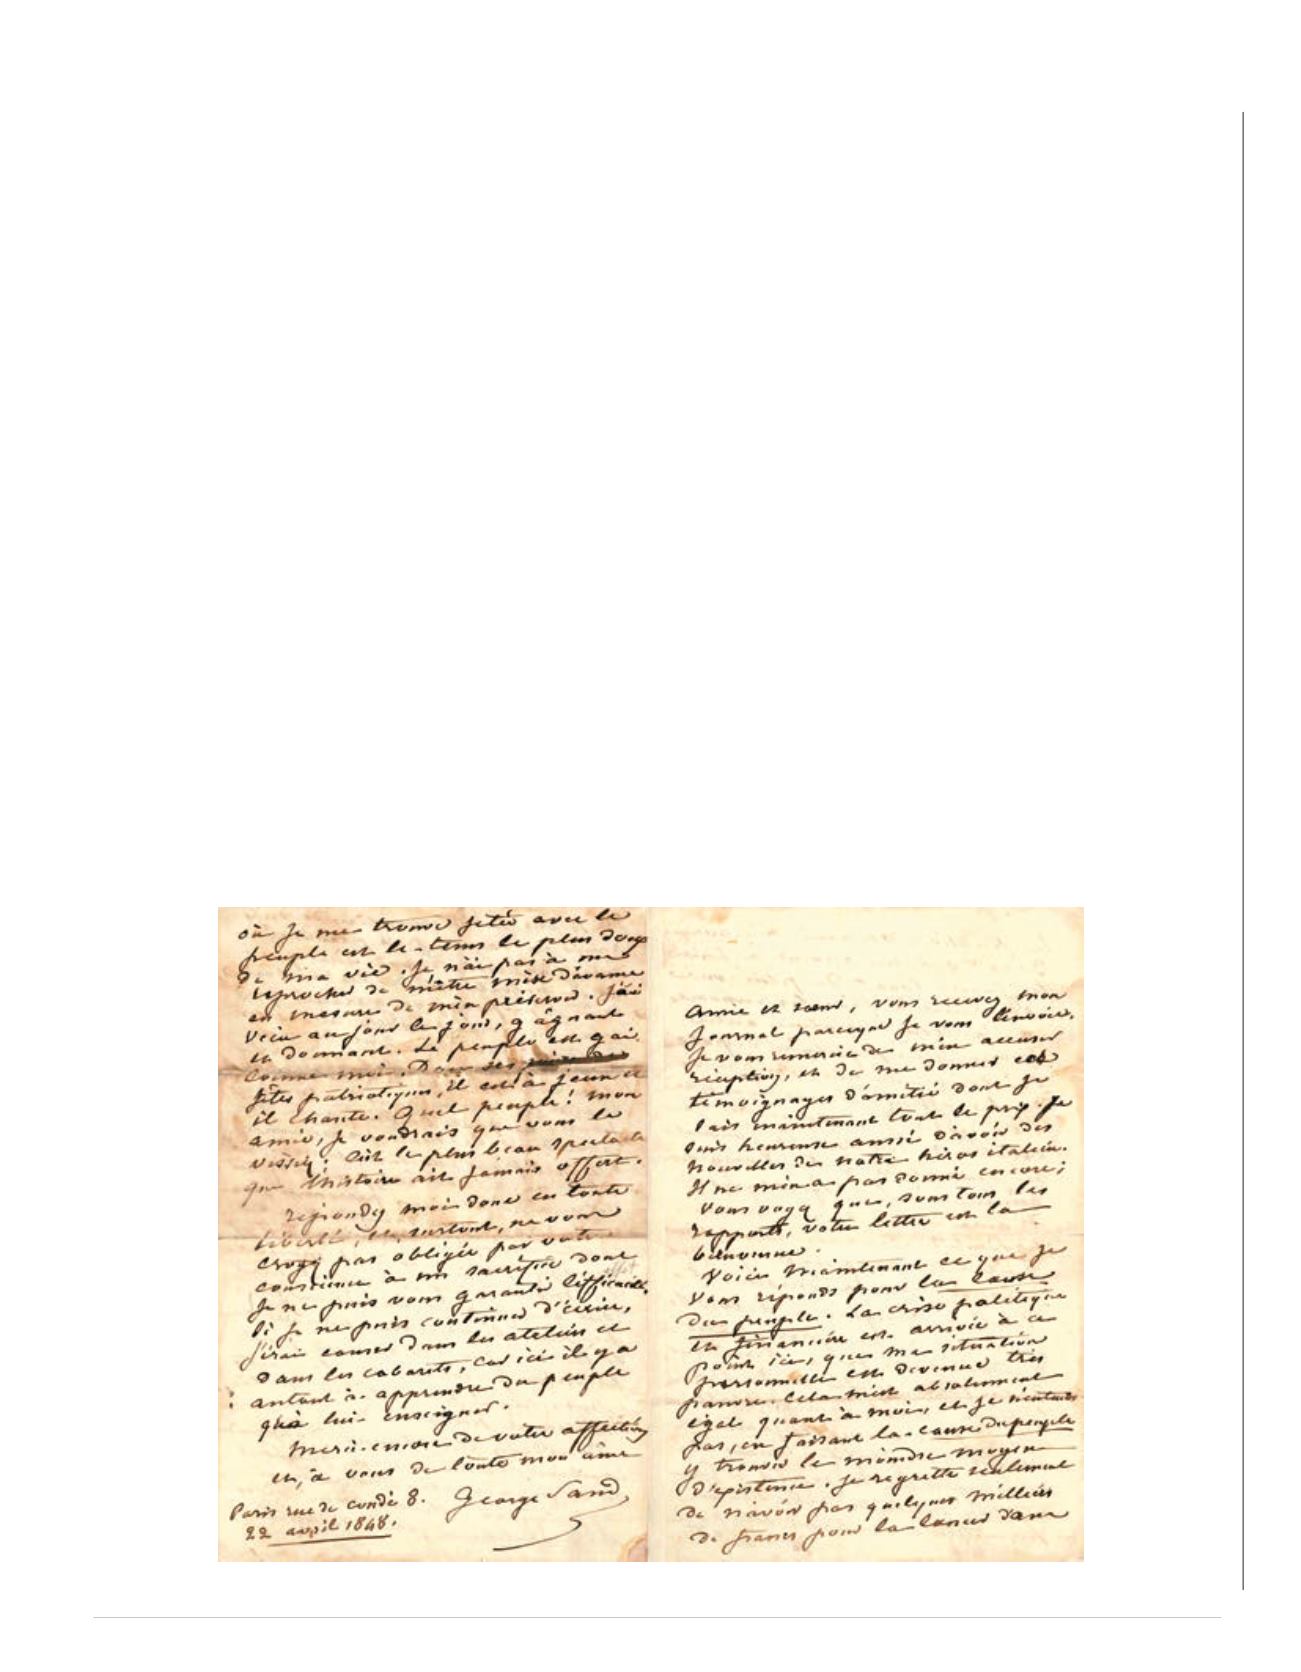 où je me trouve jetée avec le
peuple est le tems le plus doux
de ma vie. Je n'ai pas à me
reprocher de m'être mise d'avance
en mesure de m'en préserver. J'ai
vécu au jour le jour, gâgnant
et donnant. Le peuple est gai
comme moi. Dans ses
fêtes patriotiques, il est à jeun et
il chante. Quel peuple! mon
amie, je voudrais que vous le
vissiez; c'est le plus beau spectacle
que l'histoire ait jamais offert.
repondez moi donc en toute
liberté, et, surtout, ne vous
croyez pas obligée par votre
conscience à un sacrifice dont
je ne puis vous garantir l'efficacité.
Si je ne puis continuer d'écrire,
j'irai causer dans les ateliers et
dans les cabarets, car ici il y a
autant à apprendre du peuple
qu'à lui enseigner.
Merci encore de votre affection
et, à vous de toute mon âme
George Sand
Paris rue de condé 8.
22 avril 1848.
Amie et sœur, vous recevez mon
journal parceque je vous l'envoie.
Je vous remercie de m'en accuser
réception, et de me donner ces
témoignages d'amitié dont je
sais maintenant tout le prix. Je
suis heureuse aussi d'avoir des
nouvelles de notre héros italien.
Il ne m'en a pas donné encore;
Vous voyez que, sous tous les
rapports, votre lettre est la
bienvenue.
Voici maintenant ce que je
vous réponds pour la cause
du peuple. La crise politique
et financière est arrivée à ce
point ici, que ma situation
personnelle est devenue très
pauvre. Cela m'est absolument
égal quant à moi, et je n'entends
pas, en faisant la cause du peuple
y trouver le moindre moyen
d'existence. Je regrette seulement
de n'avoir pas quelques milliers
de francs pour la lancer dans